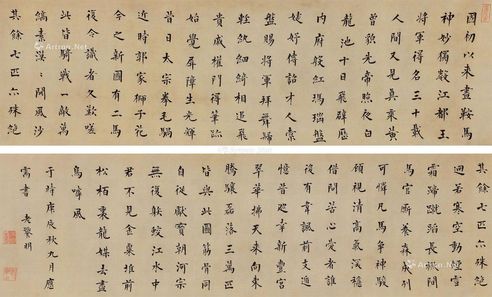 國初以來畫鞍馬
神妙獨數江都王
將軍得名三十載
人間又見真乘黄
曾貌先帝照夜白
龍池十日飛霹靂
内府殷紅瑪瑙盤
婕妤傳詔才人索
盤賜將軍拜舞歸
輕紈細綺相追飛
貴戚權門得筆跡
始覺屏障生光輝
昔日太宗拳毛騧
近時郭家獅子花
今之新圖有二馬
復令識者久歎嗟
此皆騎戰一敵萬
縞素漠〻開風沙
其餘七匹亦殊絶
其餘七匹亦殊絶
迥若寒空動煙雪
霜蹄蹴蹈長楸間
馬官廝養森成列
可憐九馬爭神駿
顧視清高氣深穩
借問苦心愛者誰
後有韋諷前支遁
憶昔巡幸新豐宮
翠華拂天來向東
騰驤磊落三萬匹
皆與此圖筋骨同
自從獻寶朝河宗
無復射蛟江水中
君不見金粟堆前
松栢裏龍媒去盡
鳥啼風
于時庚辰秋九月應
書